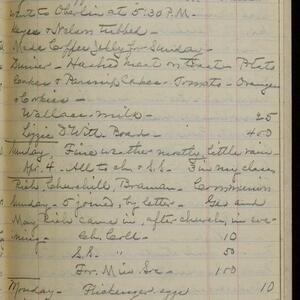 Went to Oberlin at 5:30 P.M.
Keyes & Nelson tubbed -
Made Coffee Jelly for Sunday -
Dinner - Hashed meat on toast - Potato
Cakes & Parsnip Cakes - Tomato - Orange
Cookies -
Wallace - milk - 25
Lizzie D'Witt Board - 400
Sunday, Fine weather mostly, little rain -
Apr. 4. All to ch. & S.S. Five new classes
Rich, Churchill, Braman - Communion
Sunday - 5 joined, by letter - Geo and
May Rich came in, after church, in eve-
ning - Ch. Coll - 10
S.S. " 50
For. Miss Soc - 100
Monday - Flickenger eggs 10